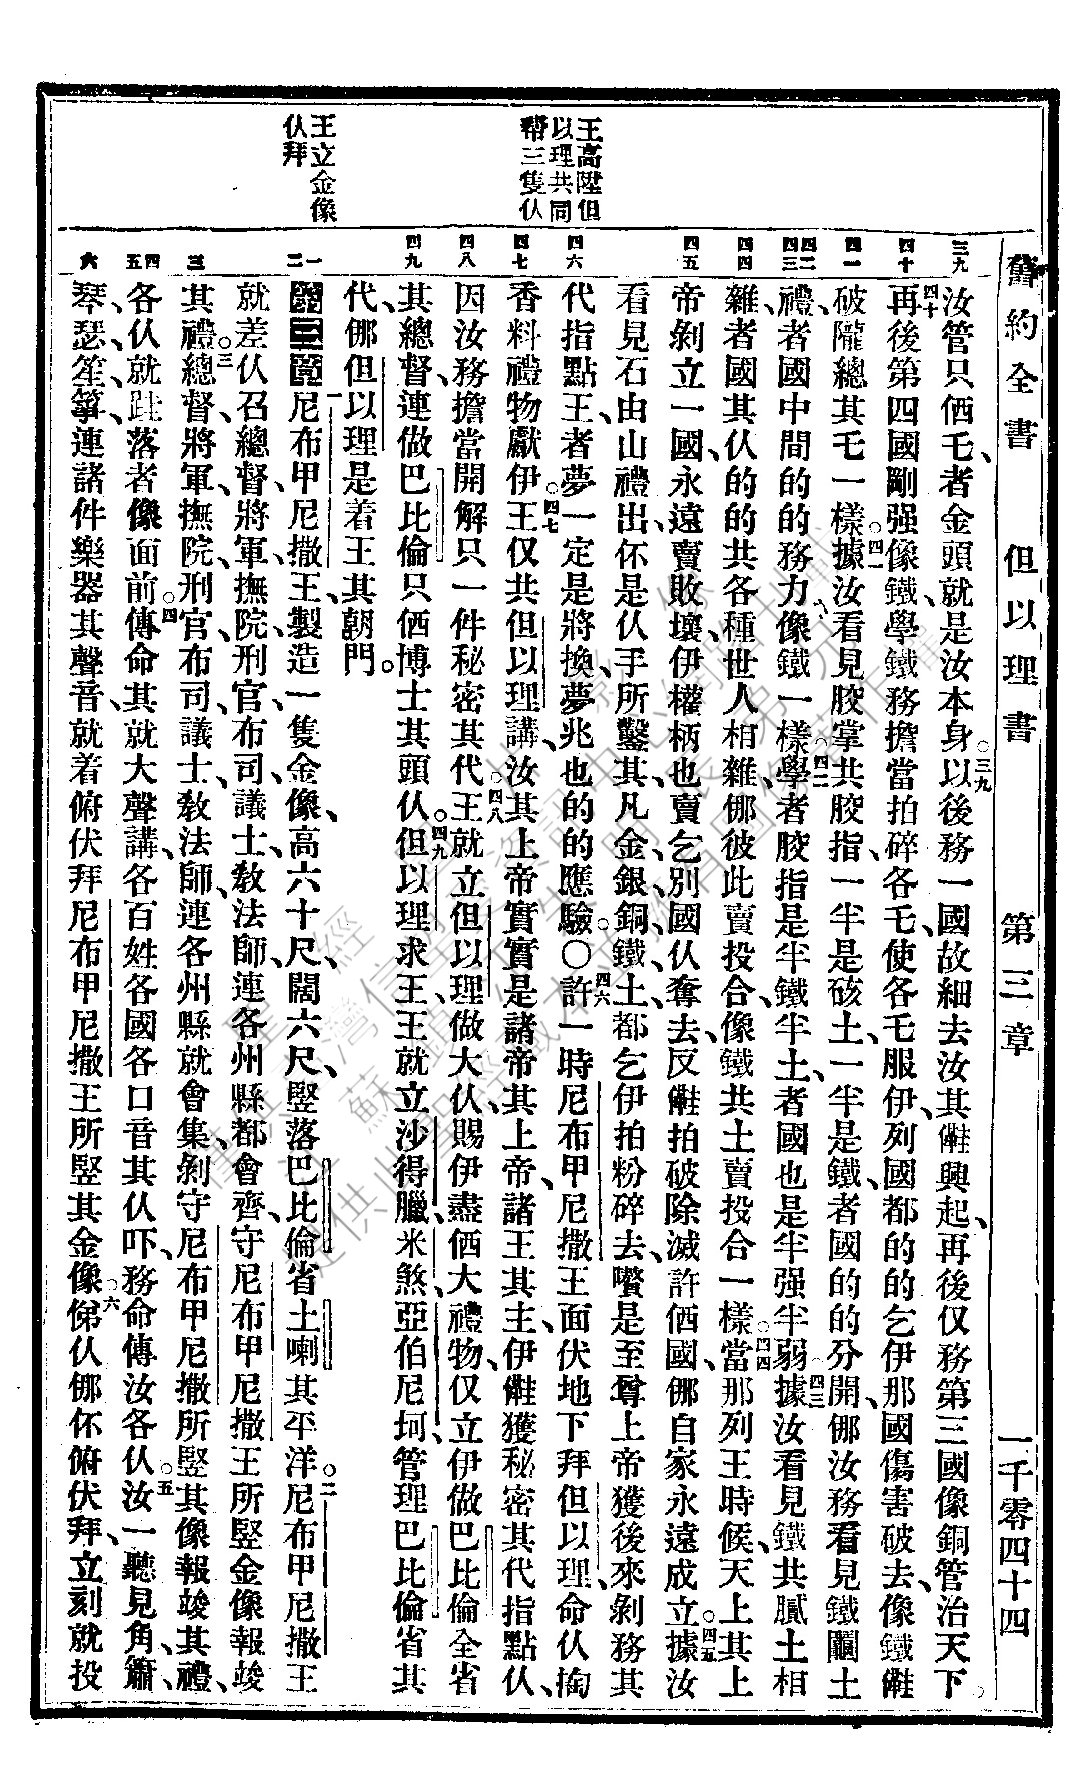 舊約全書　但以理書　第三章　一千零四十四
王高陞但
以理共同
帮三隻伙
王立金像
伙拜
三九
四十
四一
四二
四三
四四
四五
四六
四七
四八
四九
一
二
三
四
五
六
汝管只俩乇、者金頭就是汝本身。三九以後務一國故細去汝其㒰興起、再後仅務第三國像銅管治天下。
四十再後第四國剛强像鐵、學鐵務擔當拍碎各乇、使各乇服伊、列國都的的乞伊那國傷害破去、像鐵㒰
破隴總其乇一樣。四一據汝看見胶掌共胶指、一半是硋土、一半是鐵者國的的分開、㑚汝務看見鐵𬮿土
禮、者國中間的的務力像鐵一樣。四二學者胶指是半鐵半土、者國也是半强半弱。四三據汝看見鐵共膩土相
雜、者國其伙的的共各種世人相雜㑚彼此賣投合、像鐵共土賣投合一樣。四四當那列王時候、天上其上
帝剝立一國、永遠賣敗壞、伊權柄也賣乞別國伙奪去、反㒰拍破除滅許俩國、㑚自家永遠成立。四五據汝
看見石由山禮出、伓是伙手所鑿其、凡金、銀、銅、鐵、土、都乞伊拍粉碎去、嚽是至尊上帝獲後來剝務其
代指點王、者夢一定是將換、夢兆也的的應驗。〇四六許一時尼布甲尼撒王面伏地下拜但以理、命伙掏
香料禮物獻伊。四七王仅共但以理講、汝其上帝實實是諸帝其上帝、諸王其主、伊㒰獲秘密其代指點伙、
因汝務擔當開解只一件秘密其代。四八王就立但以理做大伙、賜伊盡俩大禮物、仅立伊做巴比倫全省
其總督、連做巴比倫只俩博士其頭伙。四九但以理求王、王就立沙得臘、米煞、亞伯尼坷、管理巴比倫省其
代、㑚但以理是着王其朝門。
第三章尼布甲尼撒王製造一隻金像、高六十尺、闊六尺、竪落巴比倫省土喇其平洋。二尼布甲尼撒王
就差伙召總督、將軍、撫院、刑官、布司、議士、敎法師、連各州縣都會齊、守尼布甲尼撒王所竪金像報竣
其禮。三總督、將軍、撫院、刑官、布司、議士、敎法師、連各州縣就會集、剝守尼布甲尼撒所竪其像報竣其禮、
各伙就跬落者像面前。四傳命其就大聲講、各百姓各國各口音其伙吓、務命傳汝各伙。五汝一聽見角、簫、
琴、瑟、笙、篳、連諸件樂器其聲音、就着俯伏拜尼布甲尼撒王所竪其金像。六㑚伙㑚伓俯伏拜、立刻就投